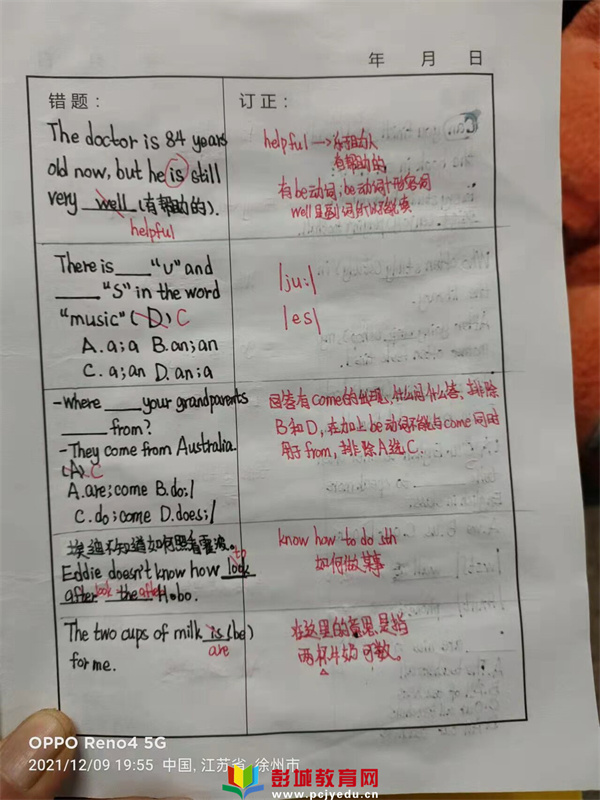 年 月 日
错题：
订正：
The doctor is 84 years
old now, but he is still
very well (有帮助的).
helpful
helpful → 乐于助人
有帮助的
有be动词，be动词+形容词
well是副词
There is ___ “u” and
___ “s” in the word
“music” (D) C
A. a; a B. an; an
C. a; an D. an; a
/ju:/
/es/
-Where ___ your grandparents
___ from?
- They come from Australia
(A) C
A. are; come B. do; /
C. do; come D. does; /
回答有come的出现，什么问什么答，排除
B和D，在加上be动词不能与come同时
用于from，排除A选C.
埃迪不知道如何照看霍波。
to
Eddie doesn't know how look
look after
after the Hobo.
know how to do sth
如何做某事
The two cups of milk is (be)
are
for me.
在这里的意思是指
两杯牛奶可数。
OPPO Reno4 5G
2021/12/09 19:55 中国, 江苏省, 徐州市
彭城教育网
www.pcjyedu.cn